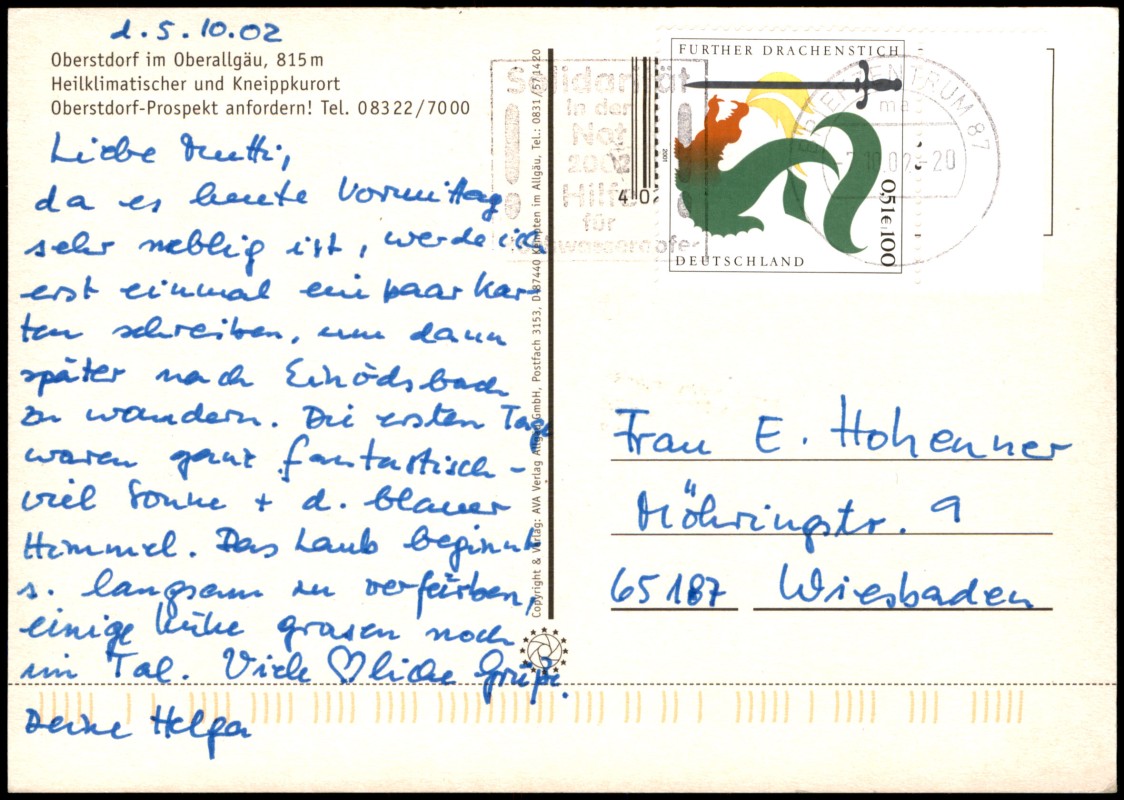 d. 5.10.02
Oberstdorf im Oberallgäu, 815 m
Heilklimatischer und Kneippkurort
Oberstdorf-Prospekt anfordern! Tel. 08322/7000
Liebe Mutti,
da es heute Vormittag
sehr neblig ist, werde ich
erst einmal ein paar Kar-
ten schreiben, um dann
später nach Einödsbach
zu wandern. Die ersten Tage
waren ganz fantastisch -
viel Sonne + d. blauer
Himmel. Das Laub beginnt
s. langsam zu verfärben,
einige Kühe grasen noch
im Tal. Viele ♡liche Grüße.
Deine Helga
Copyright & Verlag: AVA Verlag Allgäu GmbH, Postfach 3153, D-87440 Kempten im Allgäu, Tel.: 0831/5714 20
Solidarität
in der
Not
2002
Hilfe
für
40
FURTHER DRACHENSTICH
2001
0,51 € 100
DEUTSCHLAND
BRIEFZENTRUM 87
Frau E. Hohenner
Möhringstr. 9
65187 Wiesbaden